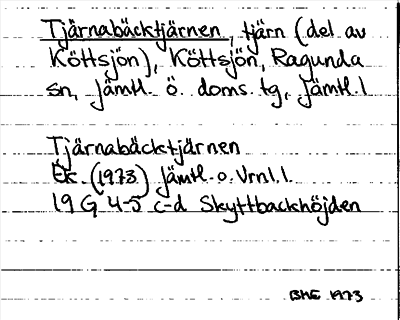 Tjärnabäcktjärnen, tjärn (del av
Köttsjön), Köttsjön, Ragunda
sn, Jämtl. ö. doms. tg, Jämtl. l
Tjärnabäcktjärnen
Ek. (1973) Jämtl. o. Vrnl. l.
19 G 4-5 c-d Skyttbackhöjden
BHE 1973